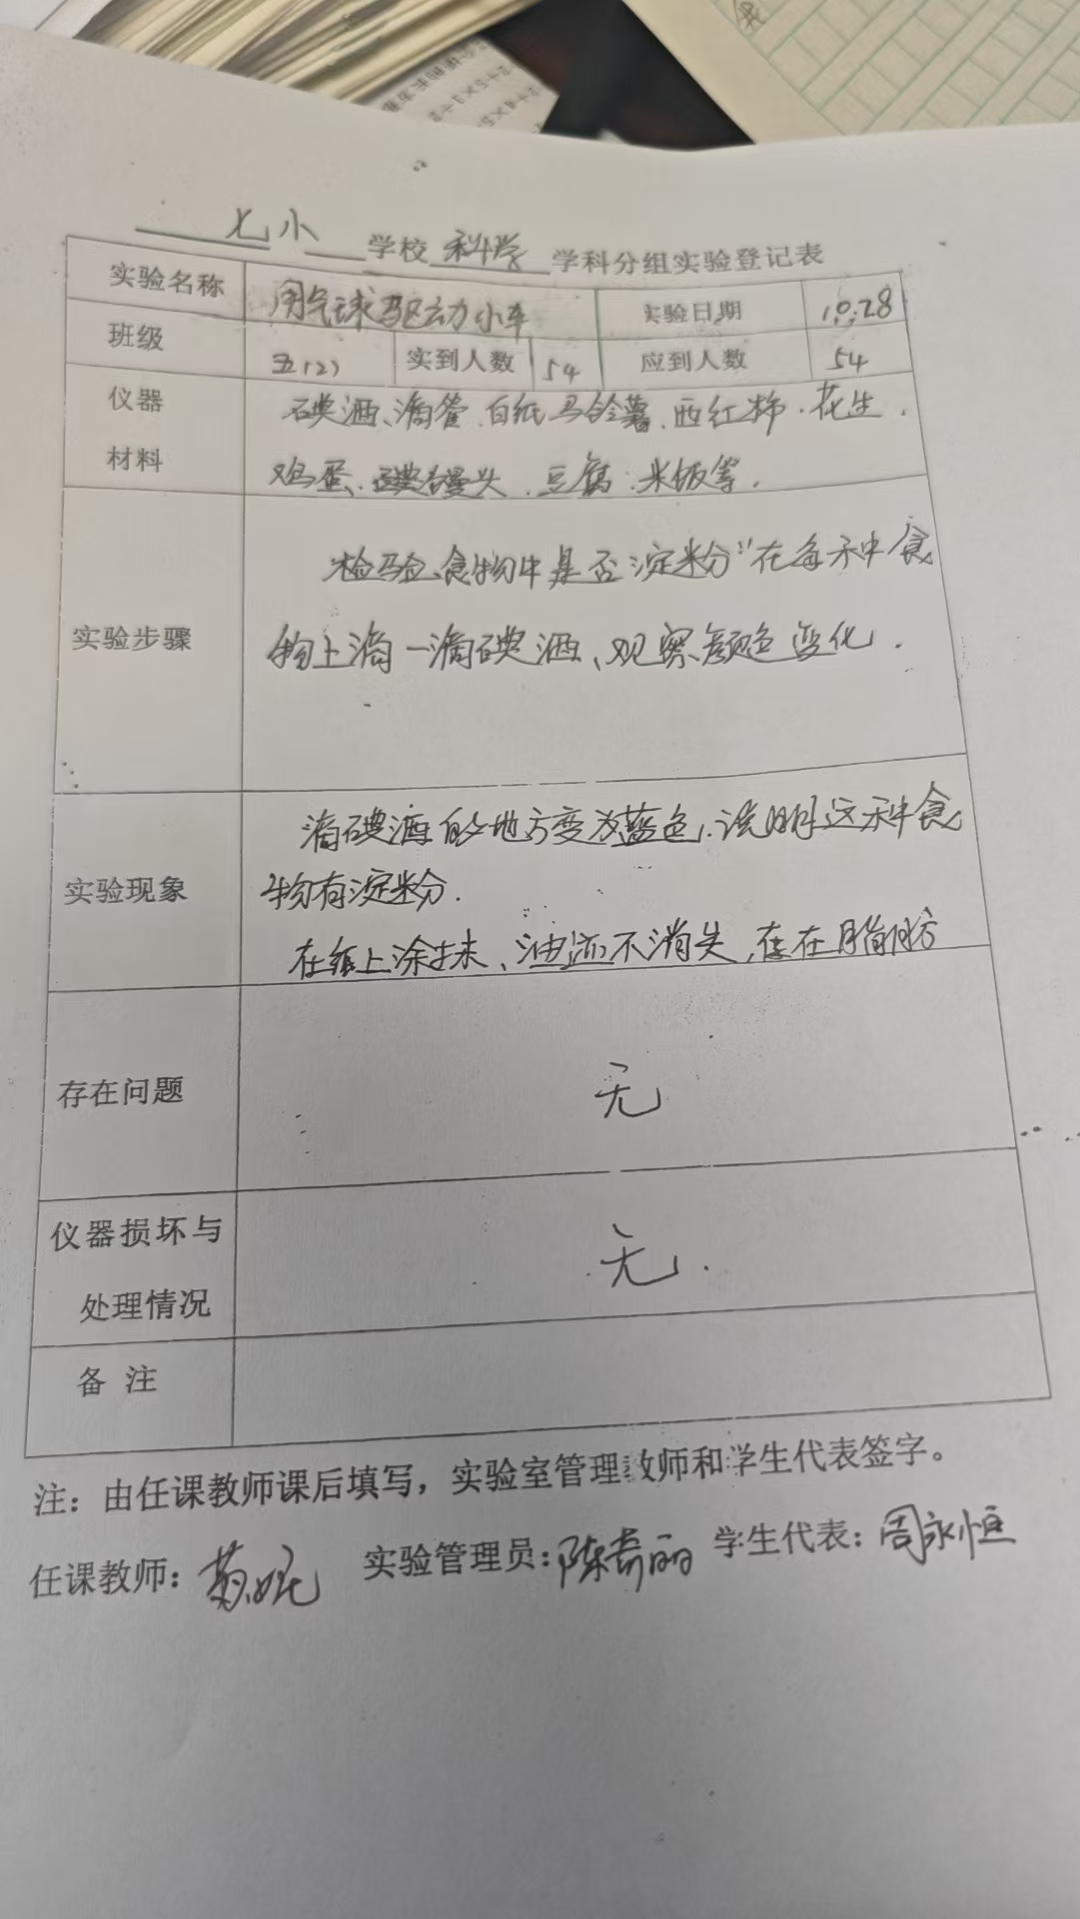 七小 学校 科学 学科分组实验登记表
实验名称 用气球驱动小车 实验日期 10.28
班级 五(2) 实到人数 54 应到人数 54
仪器 碘酒、滴管、白纸、马铃薯、西红柿、花生、
材料 鸡蛋、馒头、豆腐、米饭等.
检验食物中是否淀粉"在每禾中食
实验步骤 物上滴一滴碘酒、观察颜色变化.
滴碘酒的地方变为蓝色.说明这禾中食
实验现象 物有淀粉.
在纸上涂抹、油迹不消失、存在脂肪
存在问题 无
仪器损坏与 无.
处理情况
备 注
注：由任课教师课后填写，实验室管理教师和学生代表签字。
任课教师： 实验管理员：陈 丽 学生代表：周永恒